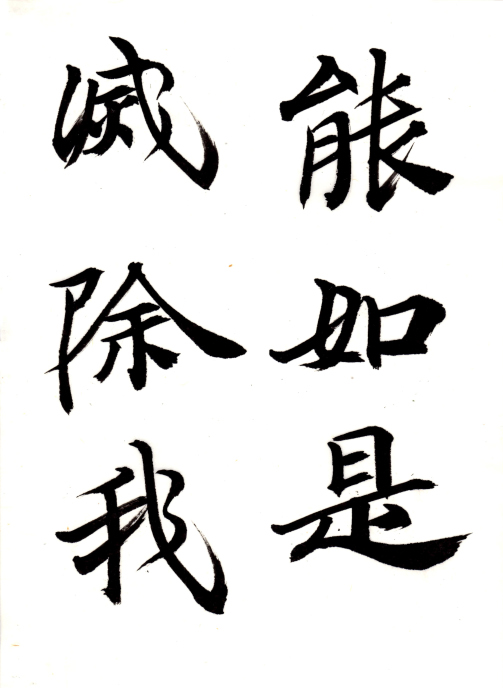 能如是
滅除我